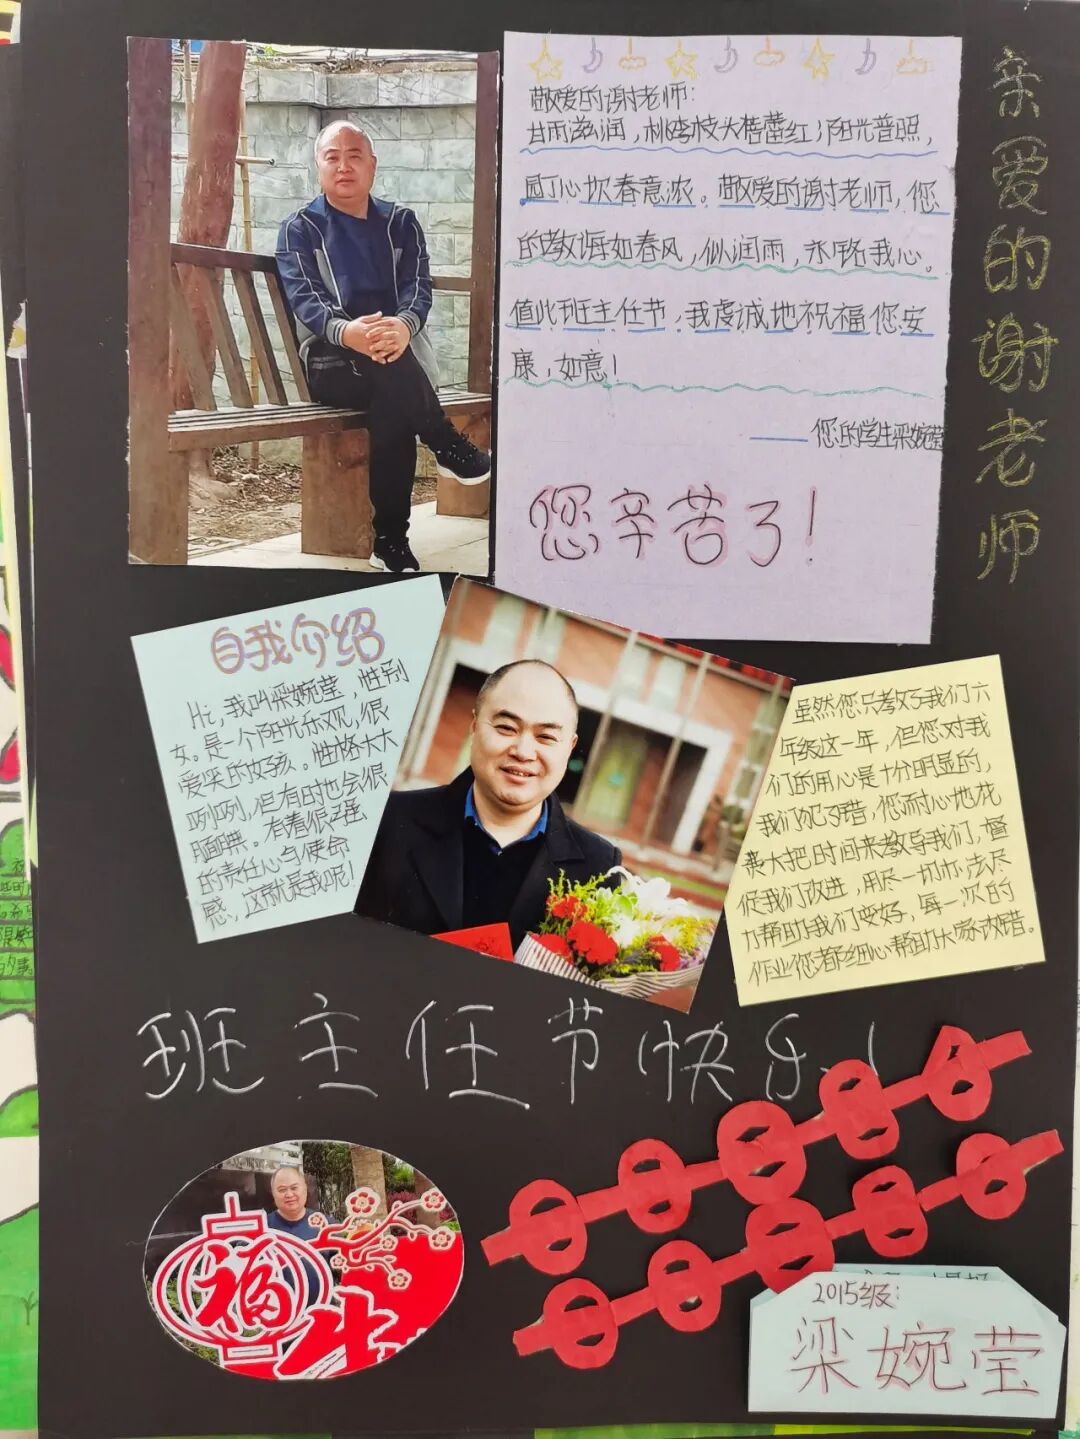 亲爱的谢老师
敬爱的谢老师：
甘雨滋润，桃李枝头蓓蕾红；阳光普照，
园丁心坎春意浓。敬爱的谢老师，您
的教诲如春风，似润雨，永铭我心。
值此班主任节，我虔诚地祝福您安
康，如意！
——您的学生梁婉莹
您辛苦了！
自我介绍
Hi，我叫梁婉莹，性别
女。是一个阳光乐观，很
爱笑的女孩。性格大大
咧咧，但有时也会很
腼腆。有着很强
的责任心与使命
感，这就是我呢！
虽然您只教了我们六
年级这一年，但您对我
们的用心是十分明显的，
我们犯了错，您耐心地花
费大把时间来教导我们，督
促我们改进，用尽一切办法尽
力帮助我们变好，每一次的
作业您都细心帮助大家改错。
班主任节快乐！
福
牛
2015级：
梁婉莹